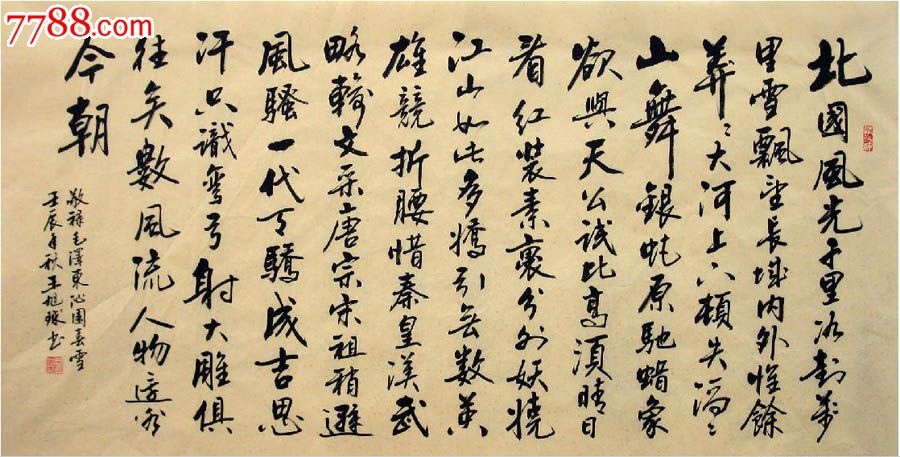 7788.com
北國風光千里冰封萬
里雪飄望長城内外惟餘
莽〻大河上下頓失滔〻
山舞銀蛇原馳蜡象
欲與天公試比高須晴日
看紅裝素裹分外妖嬈
江山如此多嬌引無數英
雄競折腰惜秦皇漢武
略輸文采唐宗宋祖稍遜
風騷一代天驕成吉思
汗只識彎弓射大雕俱
往矣數風流人物還看
今朝
敬録毛澤東沁園春雪
壬辰年秋王旭書